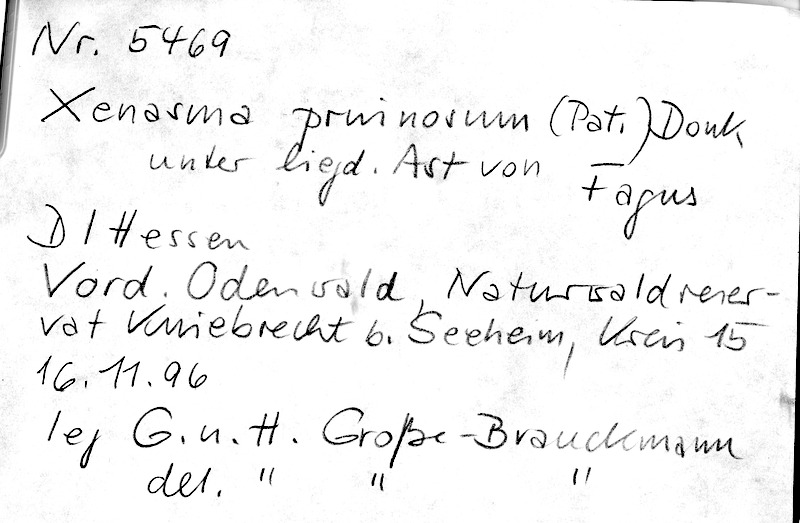 Nr. 5469
Xenasma pruinosum (Pat.) Donk
unter liegd. Ast von Fagus
D / Hessen
Vord. Odenwald, Naturwaldreser-
vat Kniebrecht b. Seeheim, Kreis 15
16.11.96
leg G. u. H. Große-Brauckmann
det. " " "